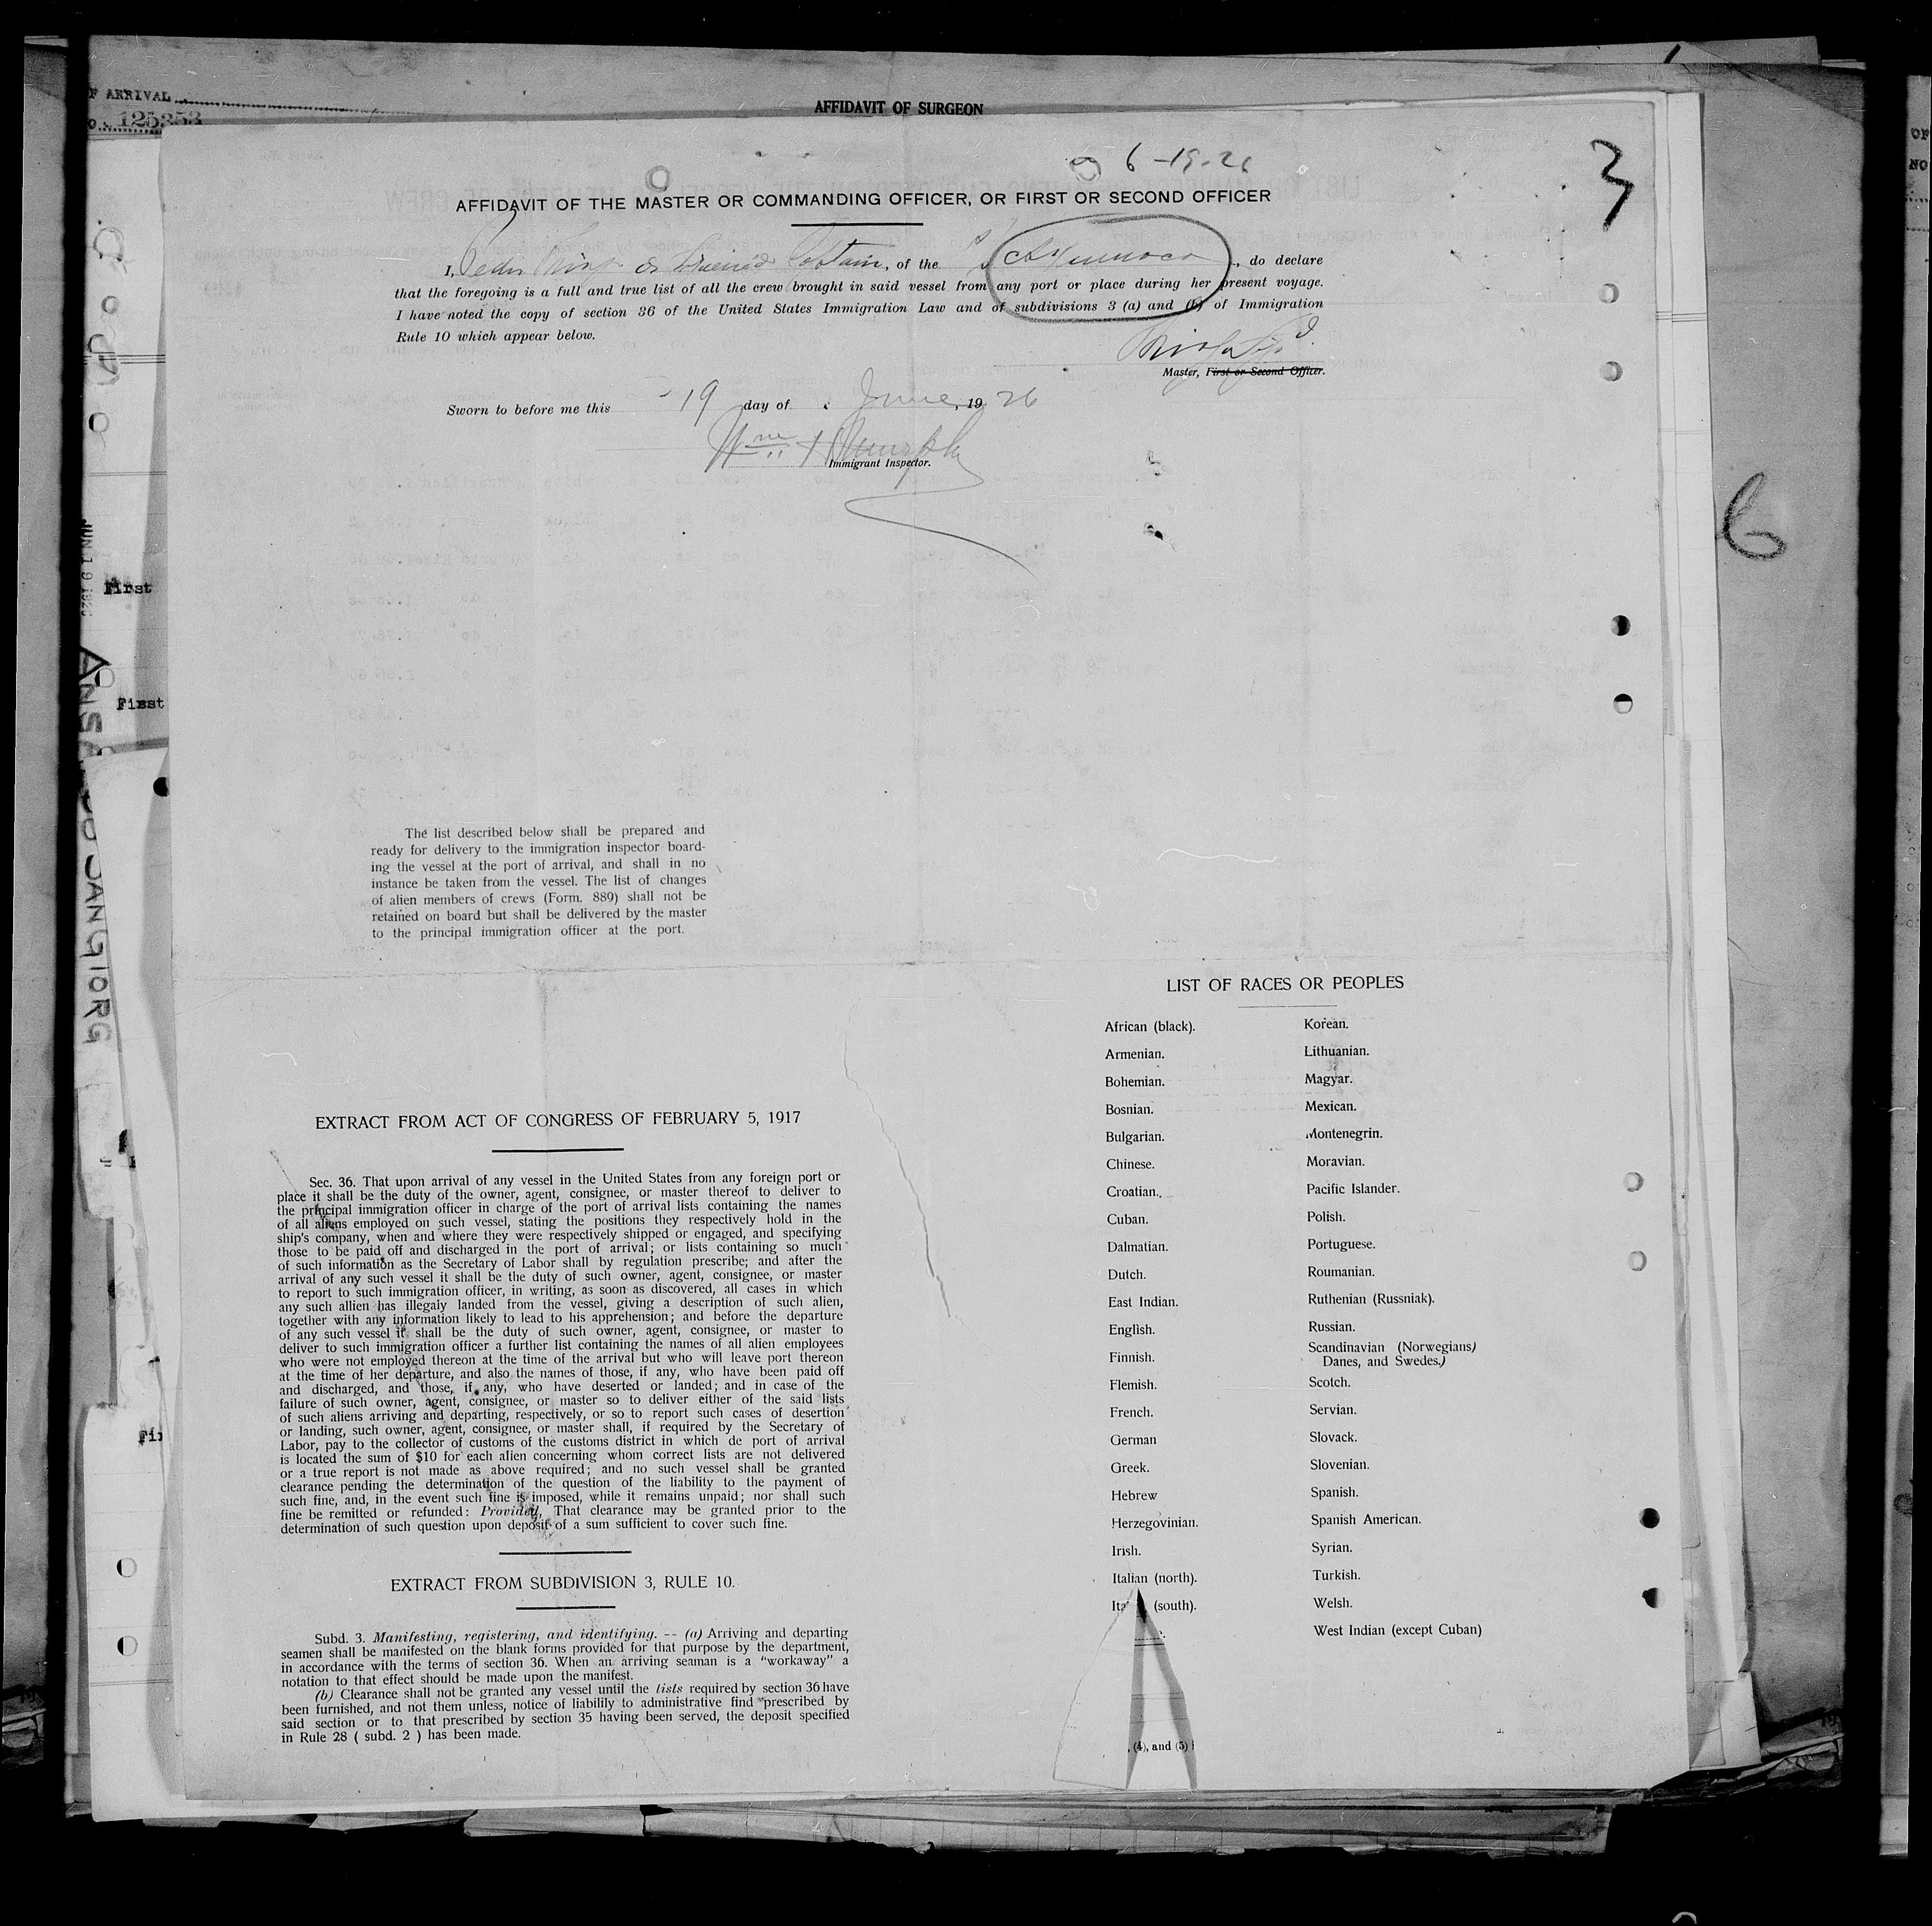 F ARRIVAL
O. 125353
AFFIDAVIT OF SURGEON
6-19-26
3
AFFIDAVIT OF THE MASTER OR COMMANDING OFFICER, OR FIRST OR SECOND OFFICER
I, Captain, of the , do declare
that the foregoing is a full and true list of all the crew brought in said vessel from any port or place during her present voyage.
I have noted the copy of section 36 of the United States Immigration Law and of subdivisions 3 (a) and (b) of Immigration
Rule 10 which appear below.
Master, First or Second Officer.
Sworn to before me this 19 day of June, 19 26
Wm H Murphy
Immigrant Inspector.
6
JUN 19 1926
First
First
The list described below shall be prepared and
ready for delivery to the immigration inspector board-
ing the vessel at the port of arrival, and shall in no
instance be taken from the vessel. The list of changes
of alien members of crews (Form. 889) shall not be
retained on board but shall be delivered by the master
to the principal immigration officer at the port.
EXTRACT FROM ACT OF CONGRESS OF FEBRUARY 5, 1917
Sec. 36. That upon arrival of any vessel in the United States from any foreign port or
place it shall be the duty of the owner, agent, consignee, or master thereof to deliver to
the principal immigration officer in charge of the port of arrival lists containing the names
of all aliens employed on such vessel, stating the positions they respectively hold in the
ship's company, when and where they were respectively shipped or engaged, and specifying
those to be paid off and discharged in the port of arrival; or lists containing so much
of such information as the Secretary of Labor shall by regulation prescribe; and after the
arrival of any such vessel it shall be the duty of such owner, agent, consignee, or master
to report to such immigration officer, in writing, as soon as discovered, all cases in which
any such allien has illegaly landed from the vessel, giving a description of such alien,
together with any information likely to lead to his apprehension; and before the departure
of any such vessel it shall be the duty of such owner, agent, consignee, or master to
deliver to such immigration officer a further list containing the names of all alien employees
who were not employed thereon at the time of the arrival but who will leave port thereon
at the time of her departure, and also the names of those, if any, who have been paid off
and discharged, and those, if any, who have deserted or landed; and in case of the
failure of such owner, agent, consignee, or master so to deliver either of the said lists
of such aliens arriving and departing, respectively, or so to report such cases of desertion
or landing, such owner, agent, consignee, or master shall, if required by the Secretary of
Labor, pay to the collector of customs of the customs district in which de port of arrival
is located the sum of $10 for each alien concerning whom correct lists are not delivered
or a true report is not made as above required; and no such vessel shall be granted
clearance pending the determination of the question of the liability to the payment of
such fine, and, in the event such fine is imposed, while it remains unpaid; nor shall such
fine be remitted or refunded: Provided, That clearance may be granted prior to the
determination of such question upon deposit of a sum sufficient to cover such fine.
EXTRACT FROM SUBDIVISION 3, RULE 10.
Subd. 3. Manifesting, registering, and identifying. -- (a) Arriving and departing
seamen shall be manifested on the blank forms provided for that purpose by the department,
in accordance with the terms of section 36. When an arriving seaman is a "workaway" a
notation to that effect should be made upon the manifest.
(b) Clearance shall not be granted any vessel until the lists required by section 36 have
been furnished, and not them unless, notice of liability to administrative find prescribed by
said section or to that prescribed by section 35 having been served, the deposit specified
in Rule 28 ( subd. 2 ) has been made.
LIST OF RACES OR PEOPLES
African (black).
Armenian.
Bohemian.
Bosnian.
Bulgarian.
Chinese.
Croatian.
Cuban.
Dalmatian.
Dutch.
East Indian.
English.
Finnish.
Flemish.
French.
German
Greek.
Hebrew
Herzegovinian.
Irish.
Italian (north).
(south).
Korean.
Lithuanian.
Magyar.
Mexican.
Montenegrin.
Moravian.
Pacific Islander.
Polish.
Portuguese.
Roumanian.
Ruthenian (Russniak).
Russian.
Scandinavian (Norwegians)
Danes, and Swedes.)
Scotch.
Servian.
Slovack.
Slovenian.
Spanish.
Spanish American.
Syrian.
Turkish.
Welsh.
West Indian (except Cuban)
, (4), and (5)